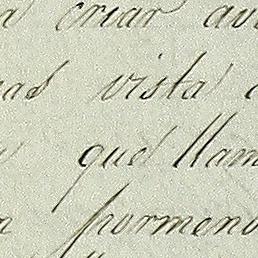 a criar av
as vista a
que llam
n pormeno